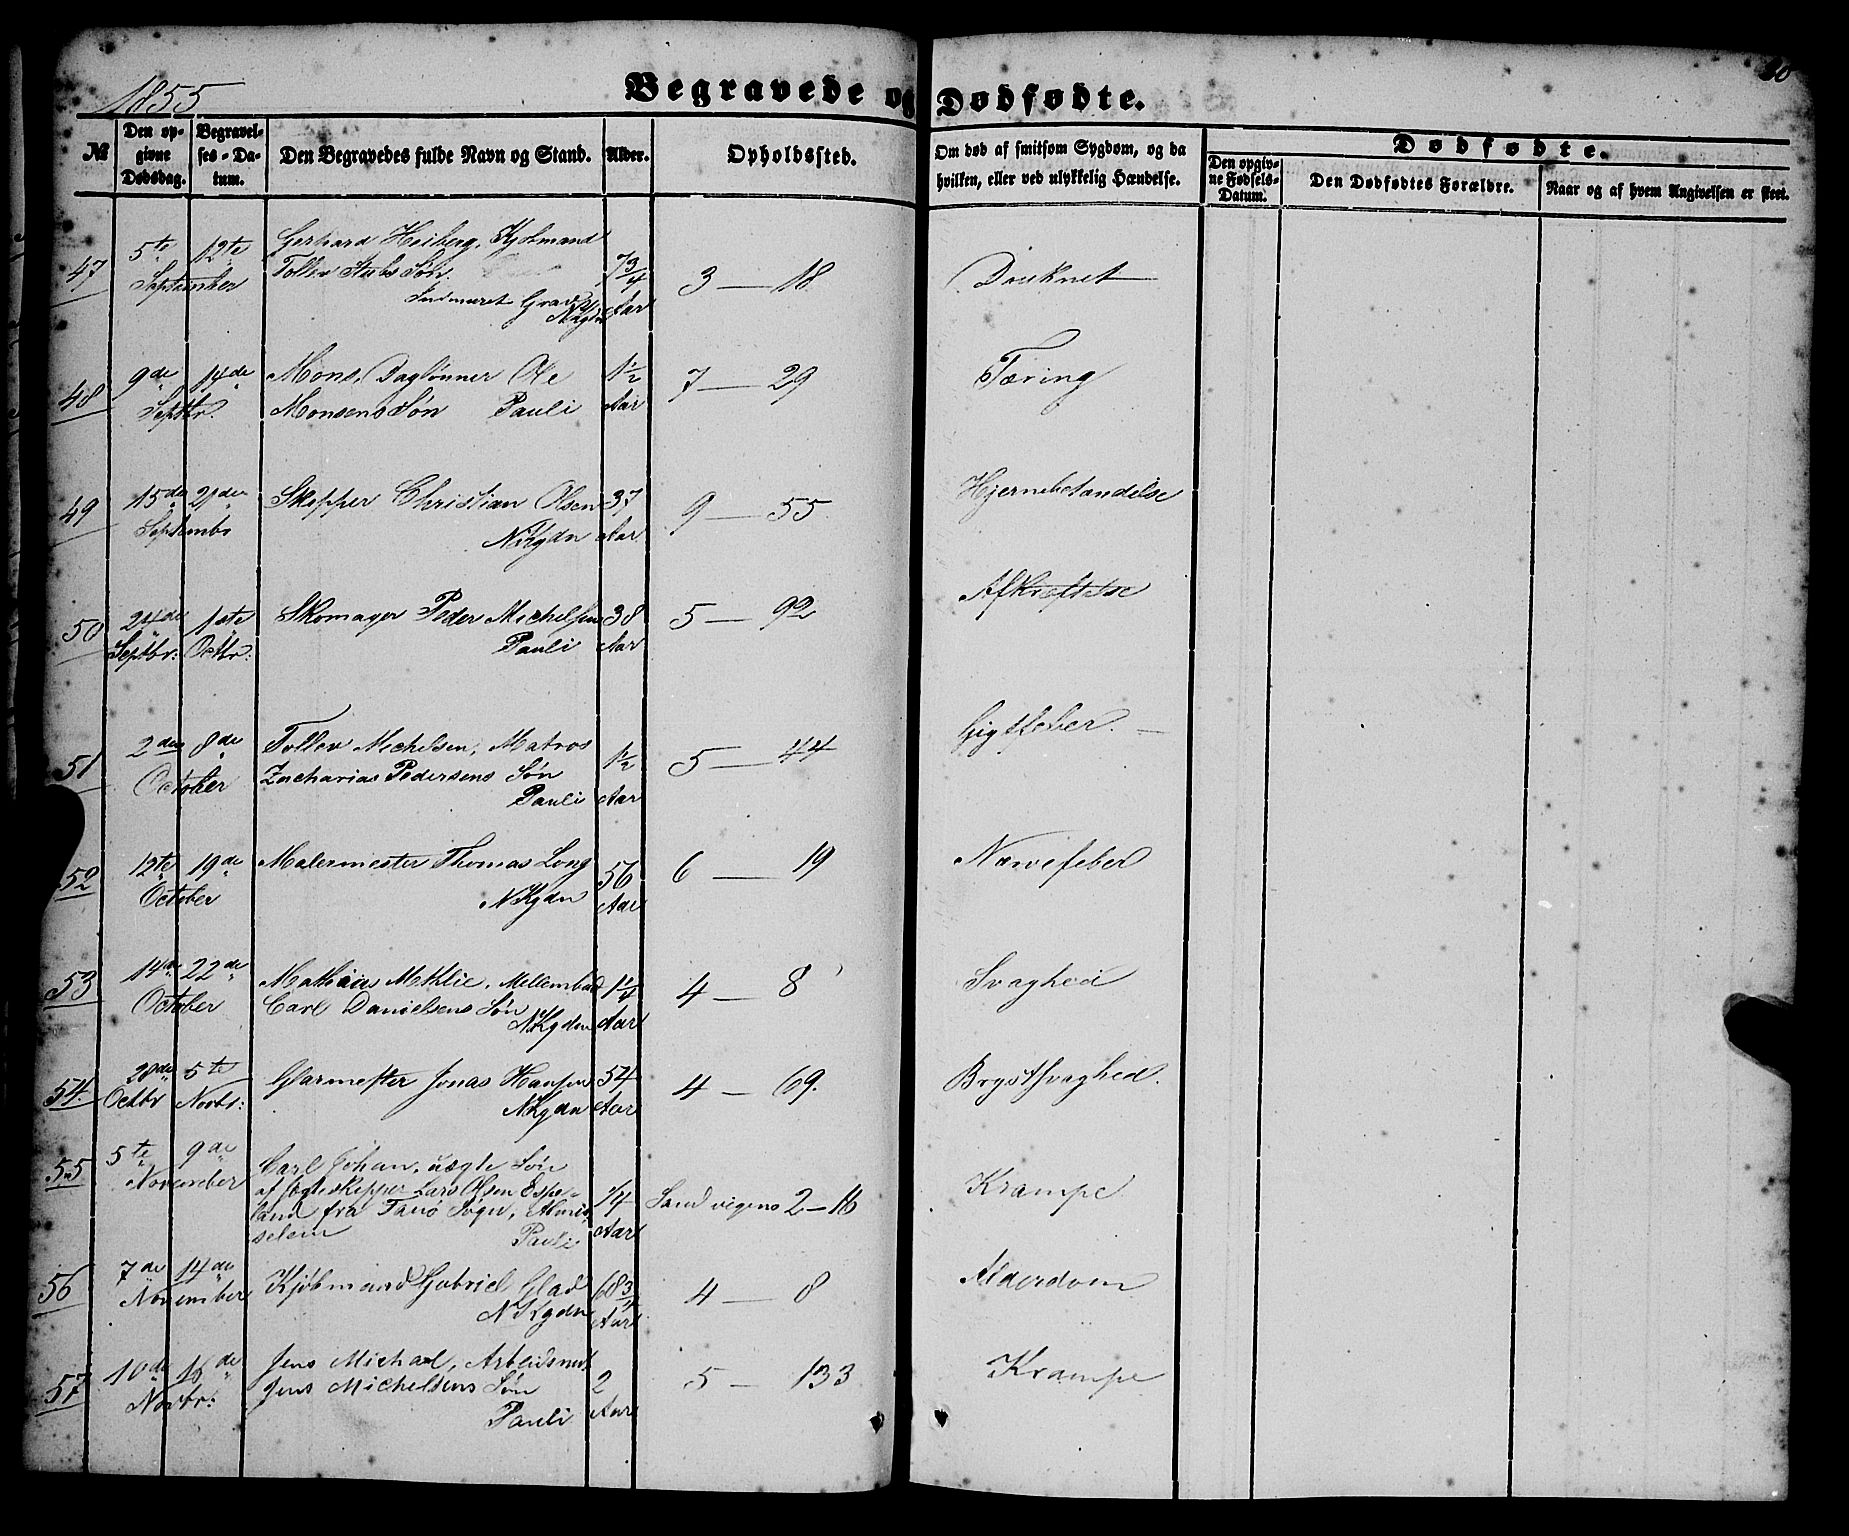 1855
Begravede og Dødfødte.
20
№
Den opgivne Dødsdag.
Begravelses-Datum.
Den Begravedes fulde Navn og Stand.
Alder.
Opholdssted.
Om død af smitsom Sygdom, og da hvilken, eller ved ulykkelig Hændelse.
Dødfødte.
Den opgivne Fødsels-Datum.
Den Dødfødtes Forældre.
Naar og af hvem Angivelsen er skeet.
47 5te 12te Gerhard Heiberg, Kjøbmand
September Tollev Søn 7 3/4 Aar 3 — 18 Druknet
Indmuret Grav
NKgdn
48 9de 14de Mons, Daglønner Ole 1 1/2 7 — 29 Tæring
Septbr. Monsens Søn Pauli Aar
49 15de 21de Skipper Christian Olsen 37 9 — 55 Hjernebetændelse
Septembr NKgdn Aar
50 24de 1ste Skomager Peder Michelsen 38 5 — 92 Afkræftelse
Septbr: Octbr: Pauli Aar
51 2den 8de Tollev Michelsen, Matros 1 1/2 5 — 44 Gigtfeber. —
October Zacharias Pedersens Søn
Pauli Aar
52 12te 19de Malermester Thomas Long 56 6 — 19 Nervefeber
October NKgdn Aar
53 14de 22de Mathias Methlie, Mellembud 1 1/4 4 — 8 Svaghed
October Carl Danielsens Søn
NKgdn Aar
54 28de 5te Glarmester Jonas Hansen 54 4 — 69. Brystsvaghed.
Octbr Novbr: NKgdn Aar
55 5te 9de Carl Johan, uægte Søn
November af Jægteskipper Lars Olsen Espeland fra Fanø Sogn, 1/4 Sandvigens 2 — 16 Krampe
Pauli Aar
56 7de 14de Kjøbmand Gabriel Glad 68 3/4 4 — 8 Alderdom
November NKgdn Aar
57 10de 16de Jens Michael, Arbeidsmd 2 5 — 133 Krampe
Novbr: Jens Michelsens Søn
Pauli Aar